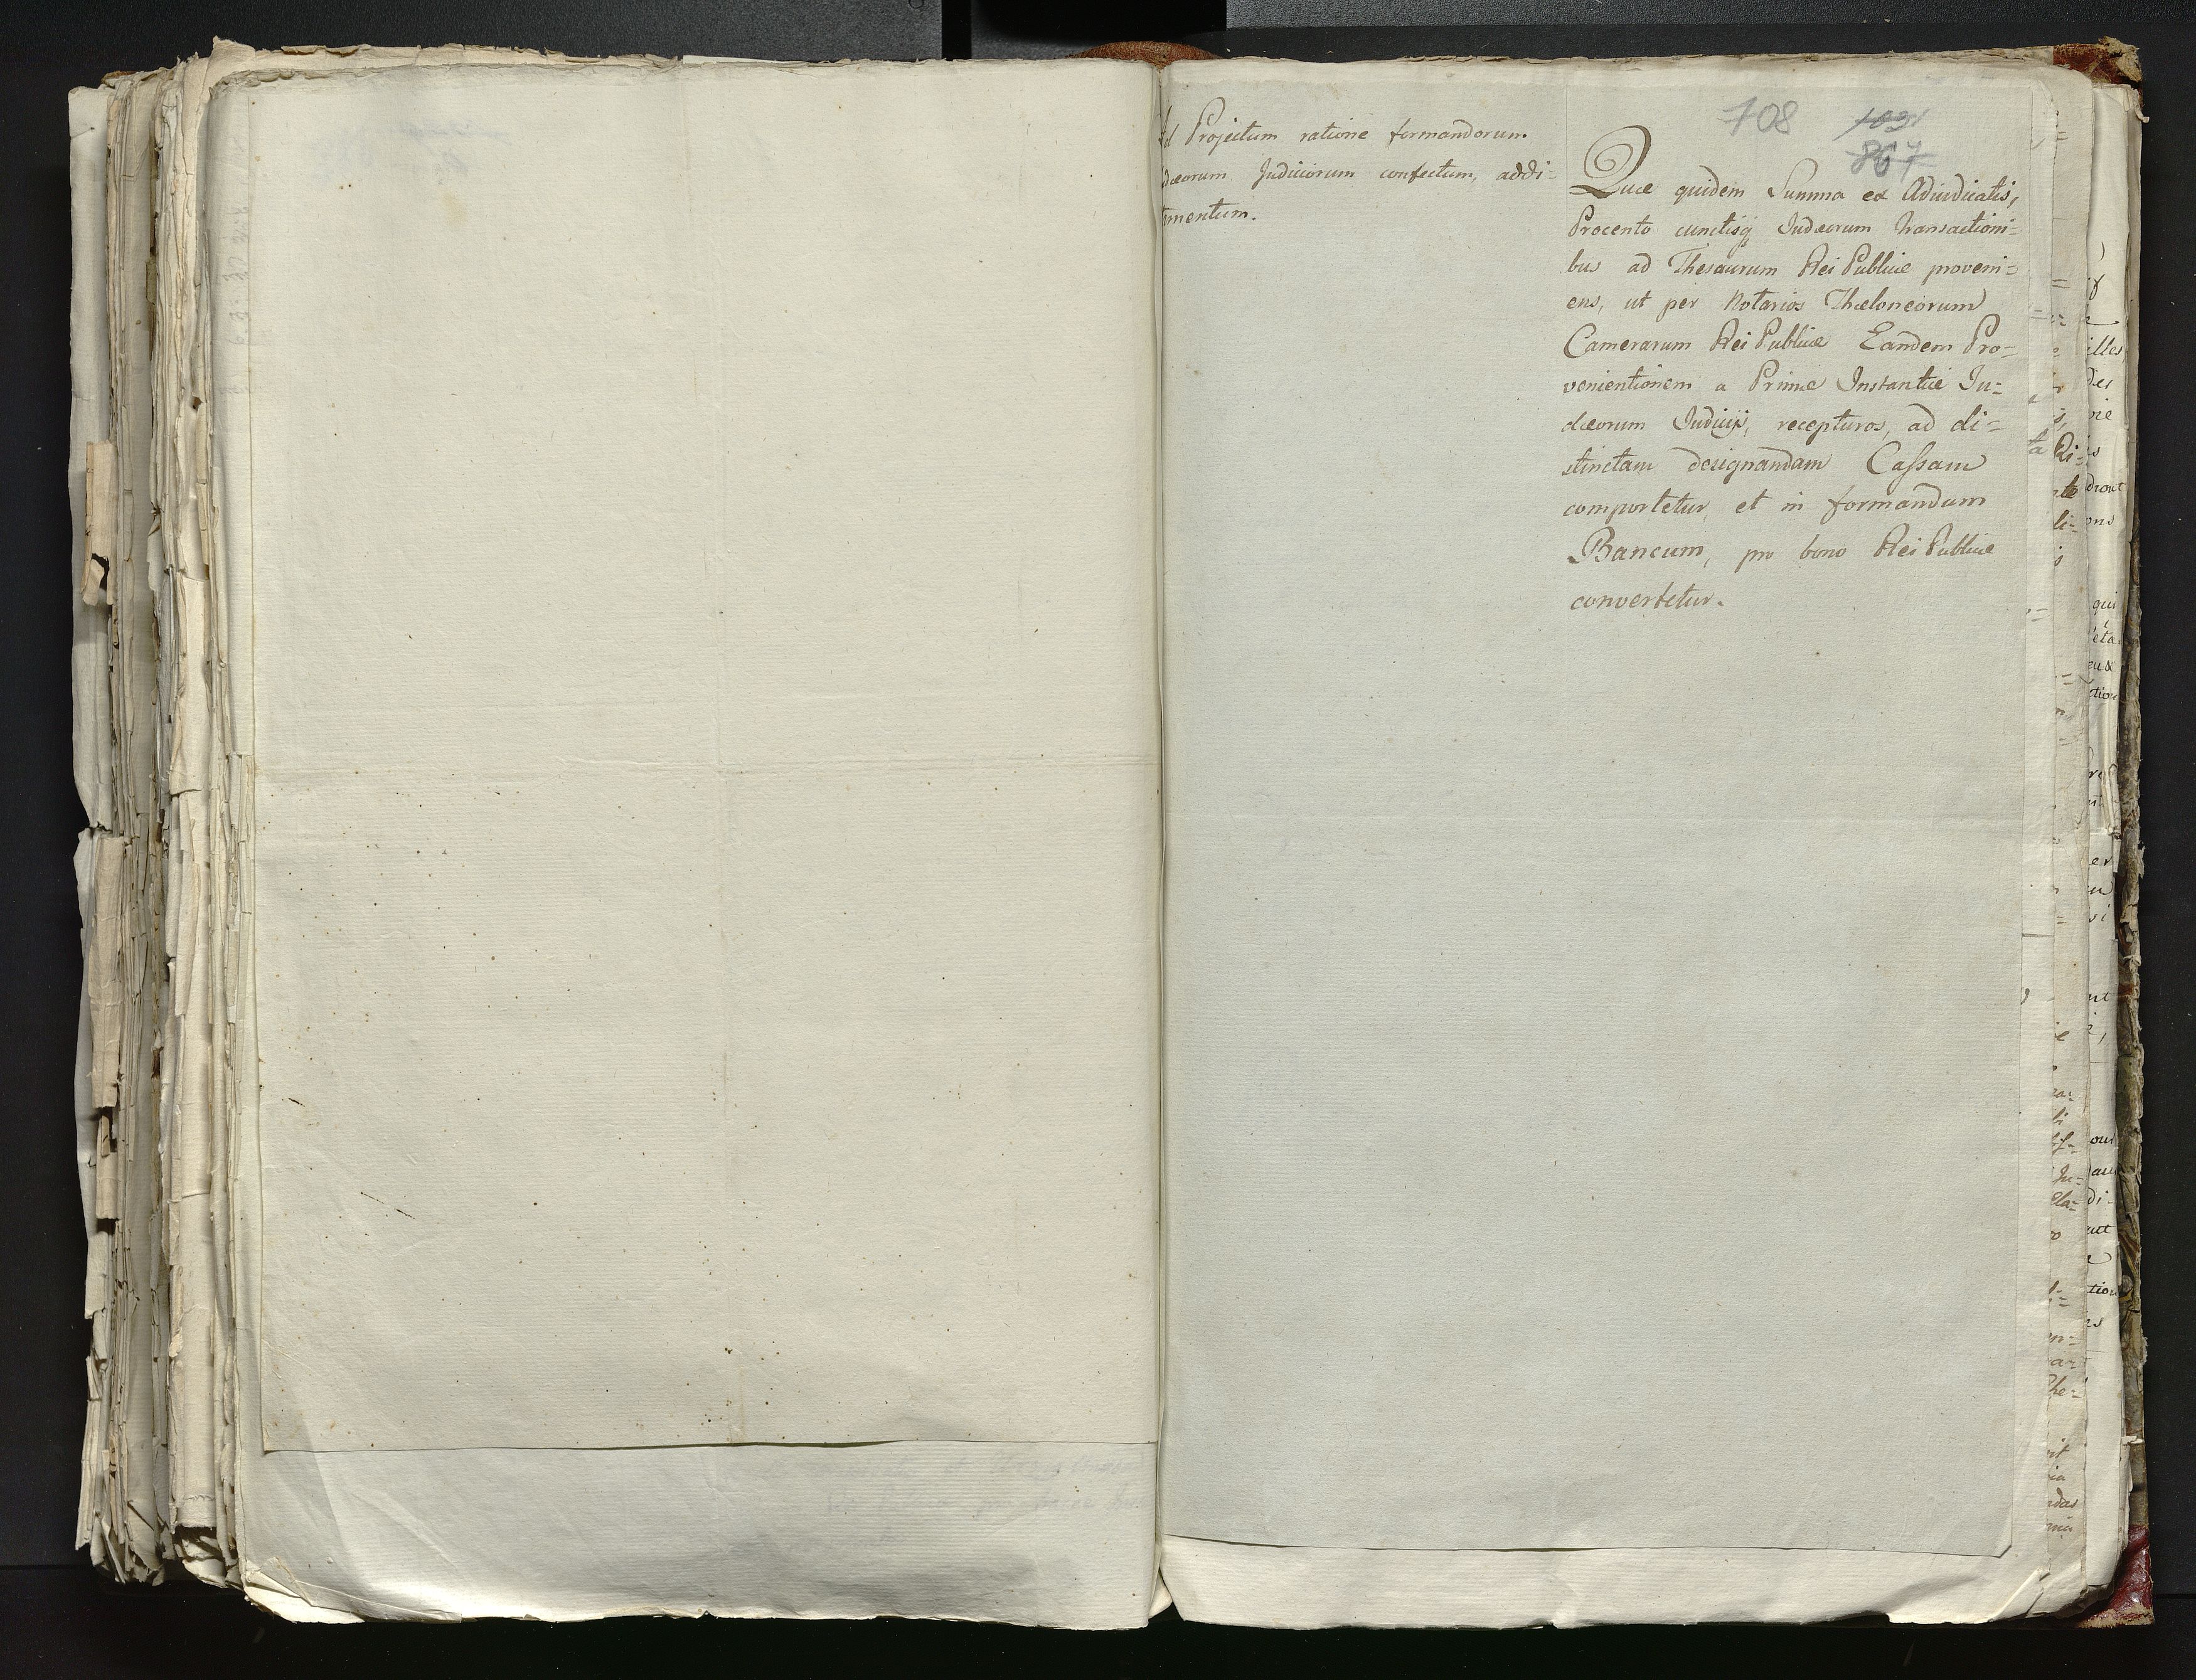 708 1091
867
Ad Projectum ratione formandorum
dæorum Judiciorum confectum, addi=
tmentum.
Quæ quidem Summa ex Adiudicatis,
Procento cunctisq Iudæorum Transactioni=
bus ad Thesaurum Rei Publicæ proveni=
ens, ut per Notarios Thæloneorum
Camerarum Rei Publicæ Eandem Pro=
venientionem a Primæ Instantiæ Iu=
dæorum Iudicijs, recepturos, ad di=
stinctam designandam Caſsam
comportetur, et in formandum
Bancum, pro bono Rei Publicæ
convertetur.